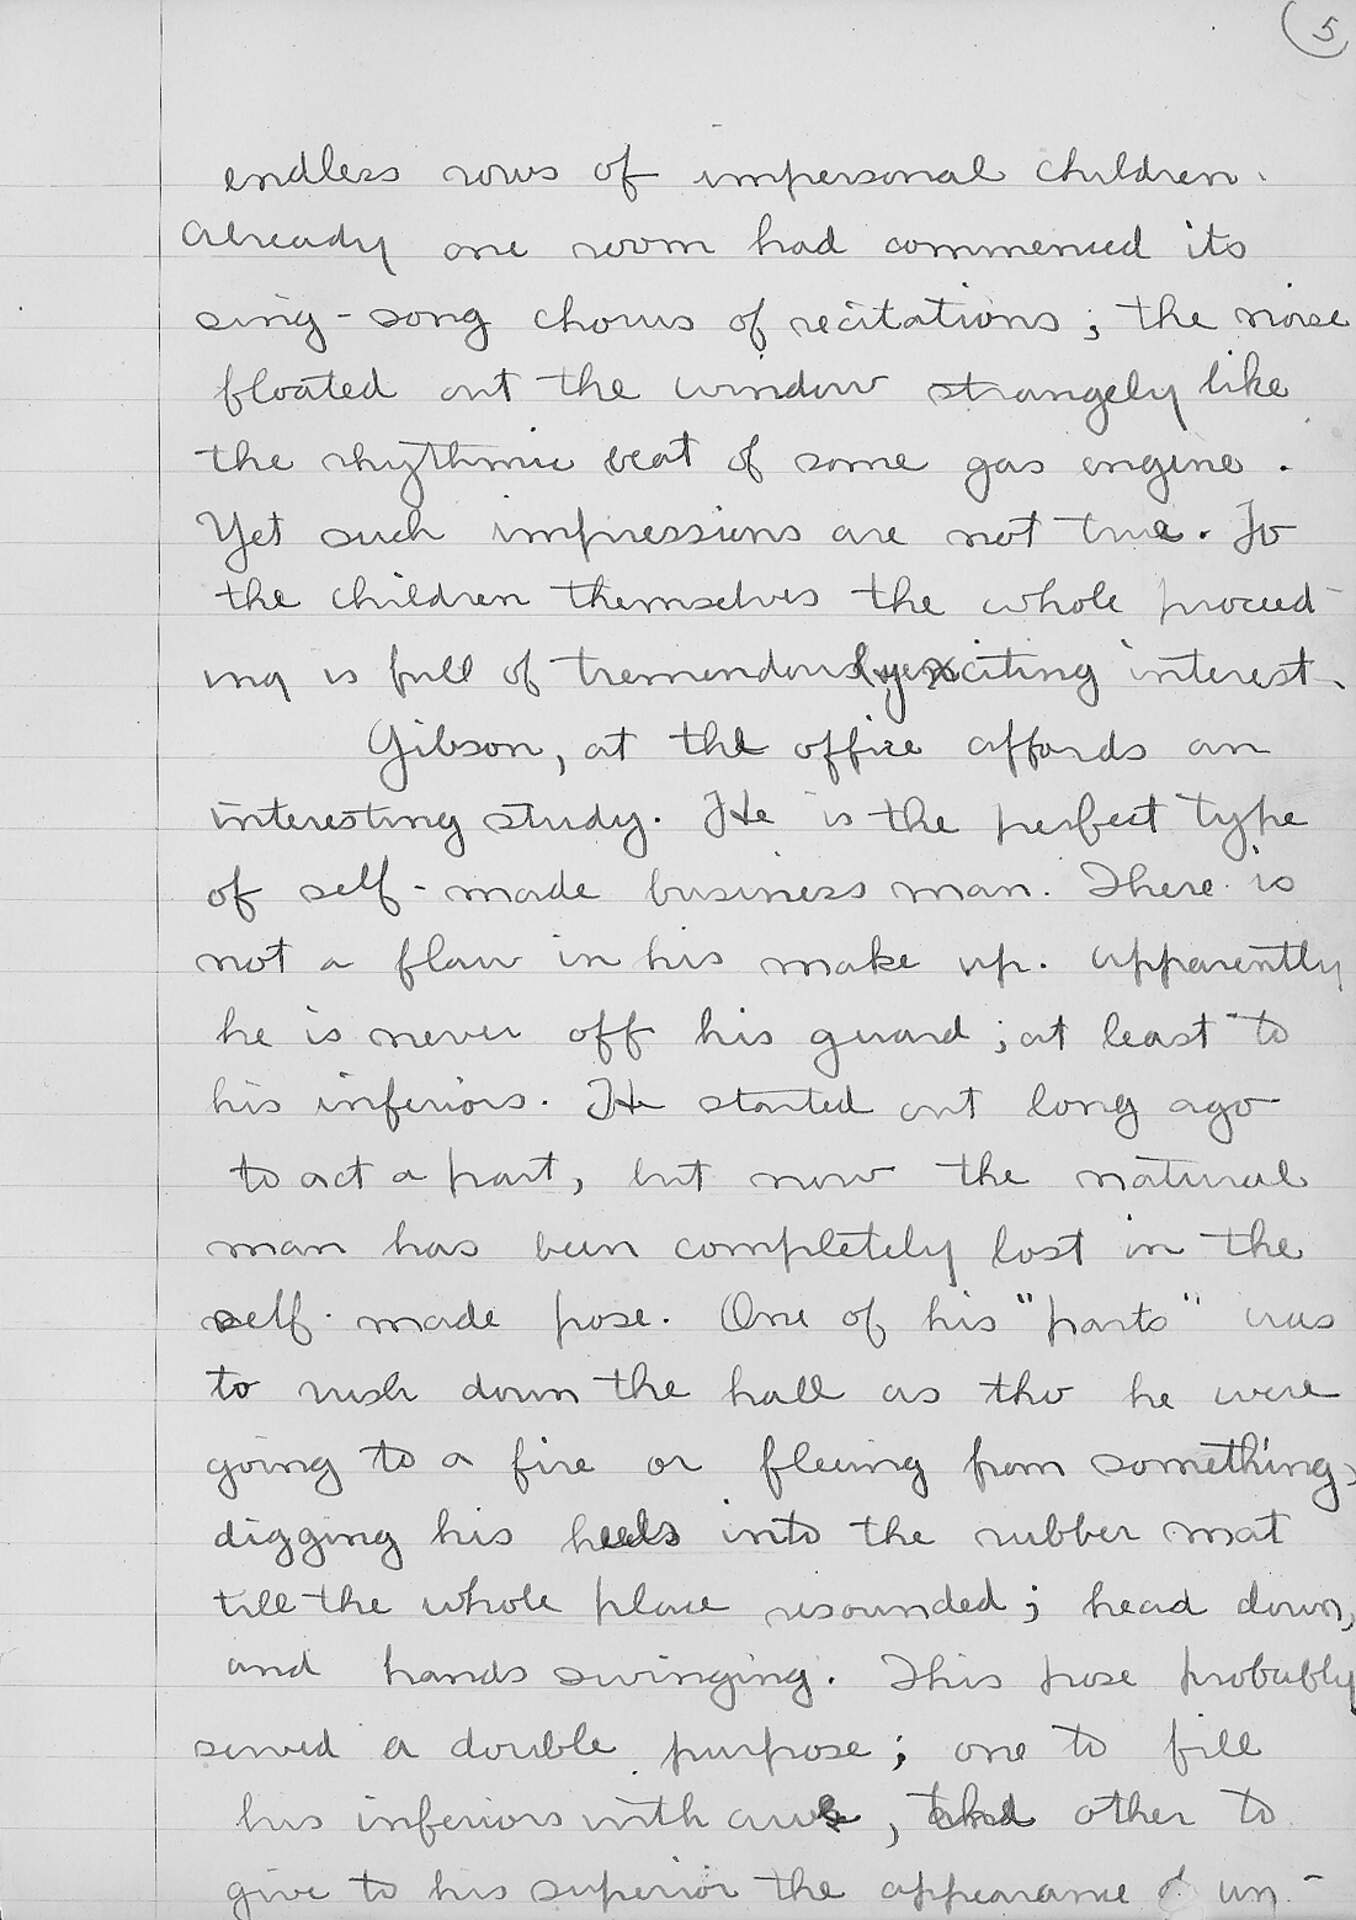 5
endless rows of impersonal children.
Already one room had commenced its
sing-song chorus of recitations; the noise
floated out the window strangely like
the rhythmic beat of some gas engine.
Yet such impressions are not true. To
the children themselves the whole proceed-
ing is full of tremendously exciting interest.
Gibson, at the office affords an
interesting study. He is the perfect type
of self-made business man. There is
not a flaw in his make up. Apparently
he is never off his guard; at least to
his inferiors. He started out long ago
to act a part, but now the natural
man has been completely lost in the
self-made pose. One of his "parts" was
to rush down the hall as tho he were
going to a fire or fleeing from something,
digging his heels into the rubber mat
till the whole place resounded; head down,
and hands swinging. This pose probably
served a double purpose; one to fill
his inferiors with awe, other to
give to his superior the appearance of un-